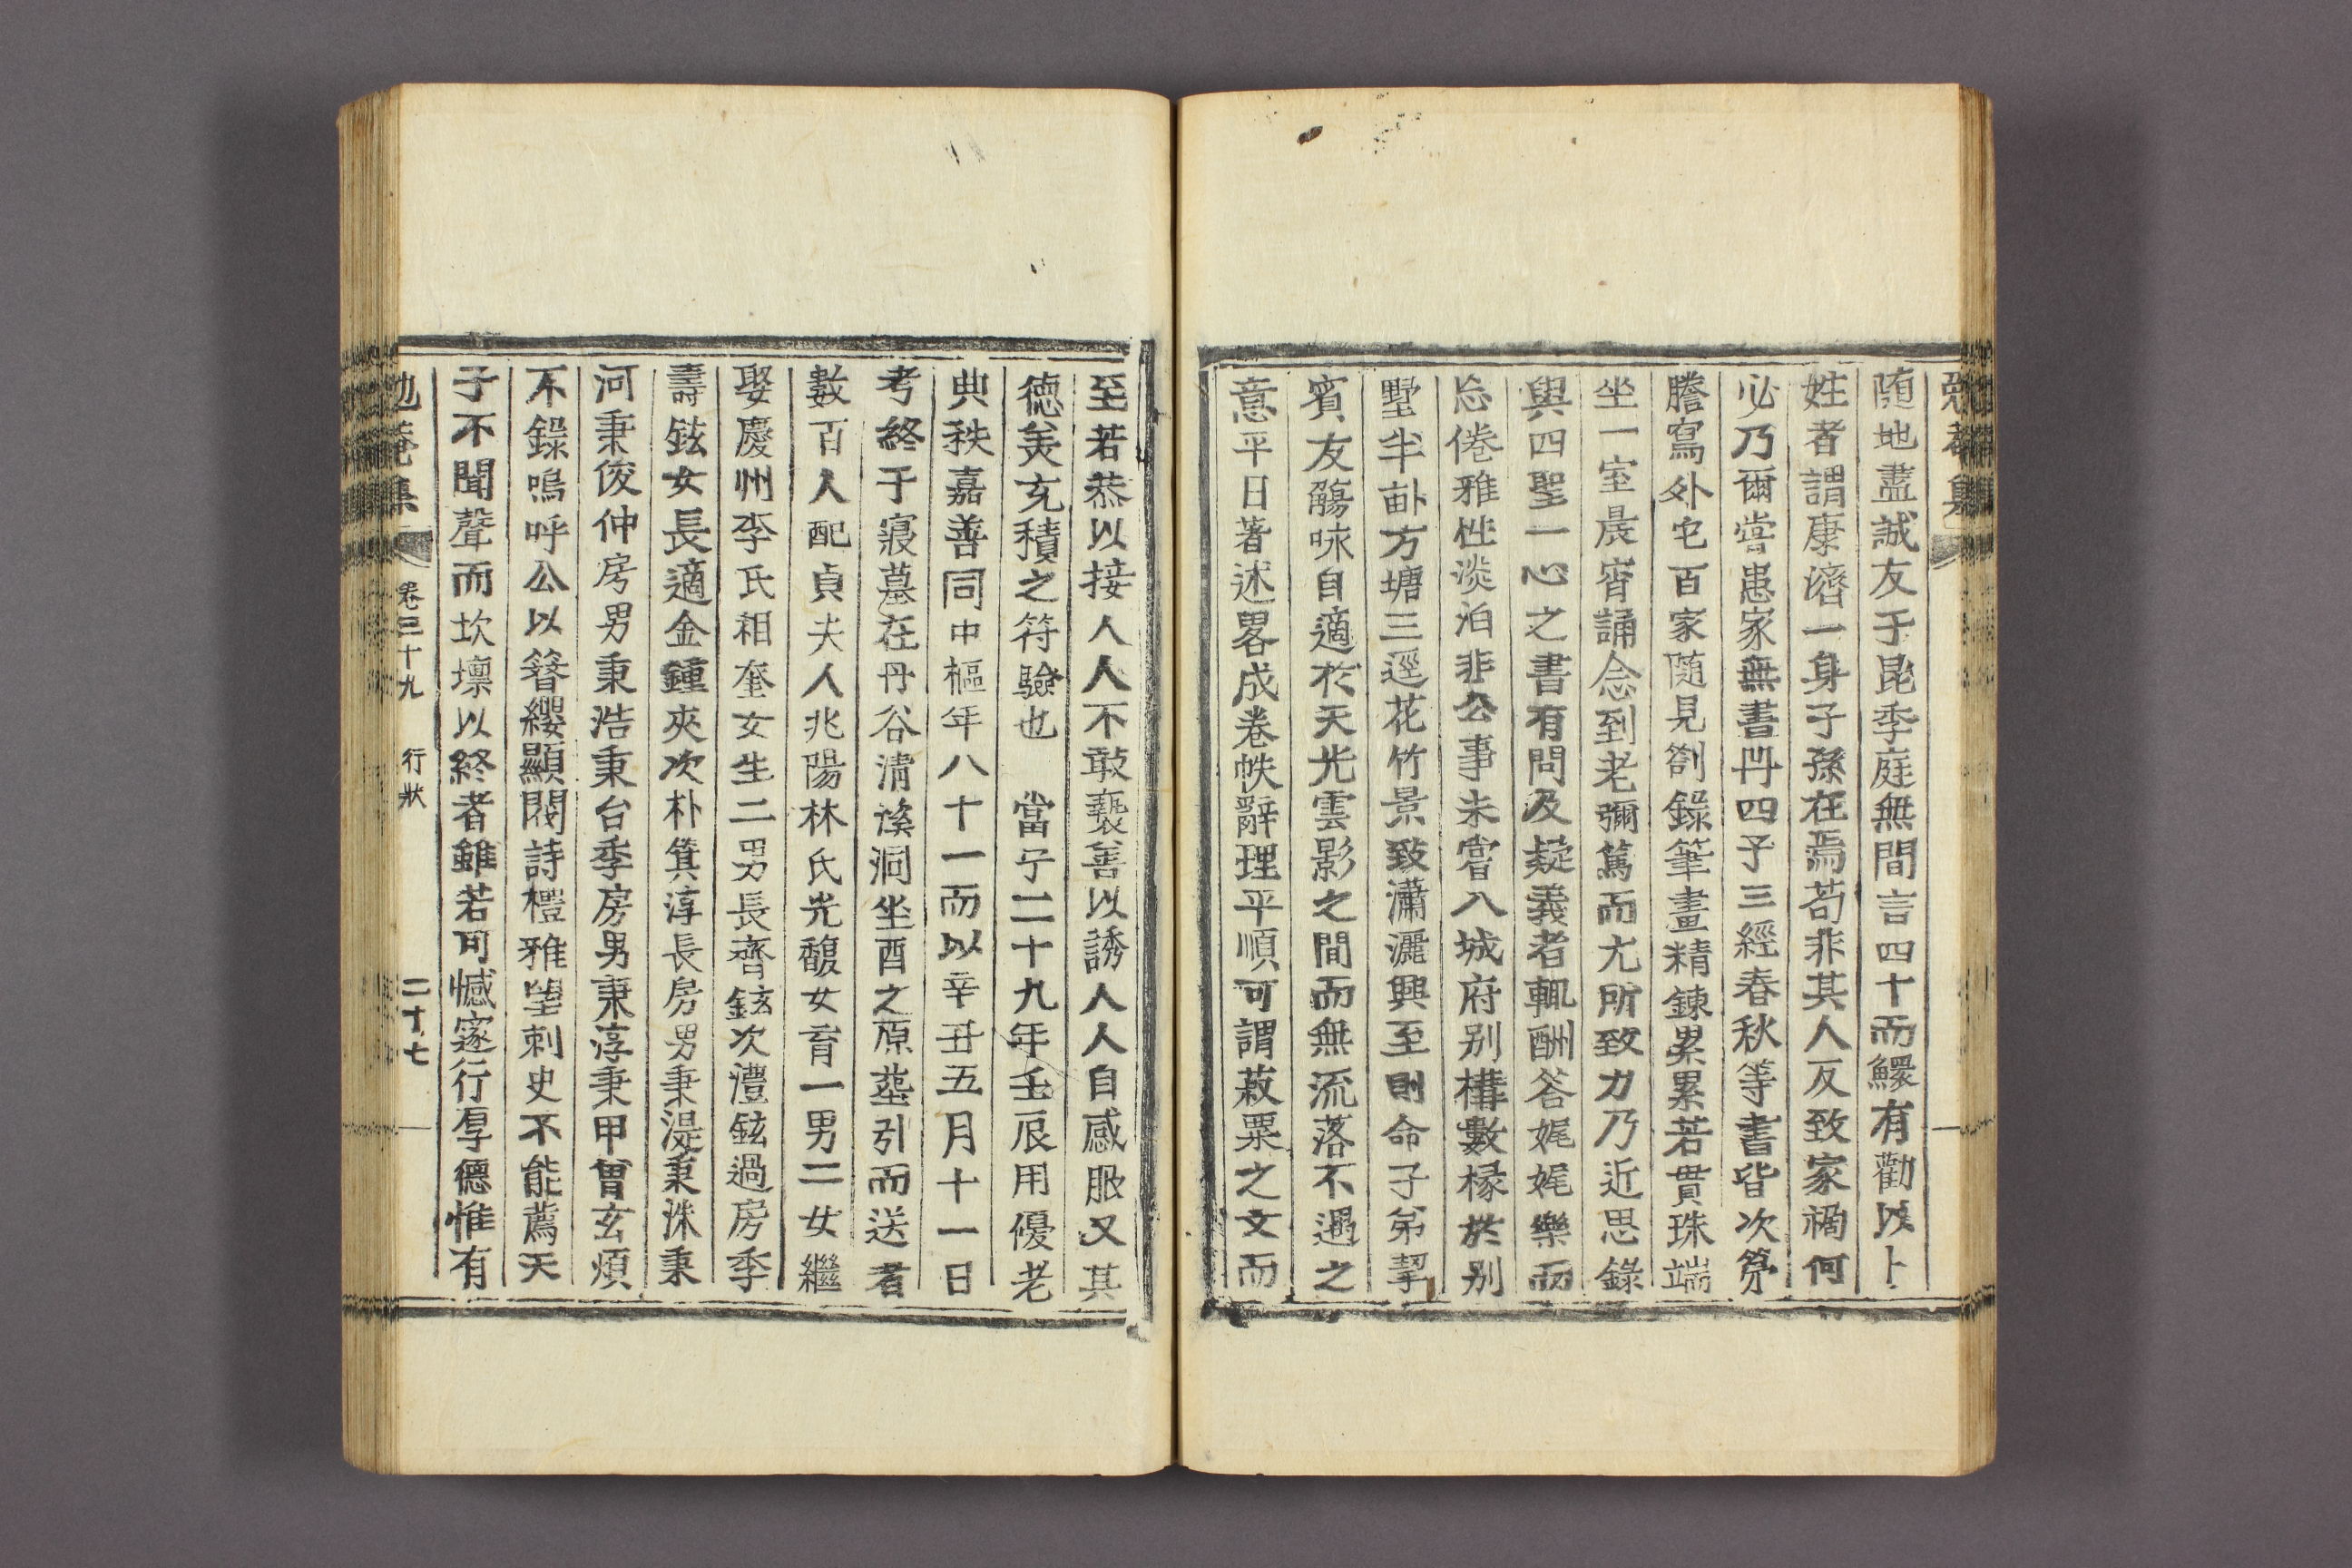 隨地盡誠友于昆季庭無間言四十而鰥有勸以卜
姓者謂康濟一身子孫在焉苟非其人反致家禍何
必乃爾嘗患家無書冊四子三經春秋等書皆次第
謄寫外它百家隨見劄錄筆畫精鍊累累若貫珠端
坐一室晨宵誦念到老彌篤而尤所致力乃近思錄
與四聖一心之書有問及疑義者輒酬答娓娓樂而
忘倦雅性淡泊非公事未嘗入城府別構數椽於別
墅半畝方塘三逕花竹景致瀟灑興至則命子弟挈
賓友觴咏自適於天光雲影之間而無流落不遇之
意平日著述畧成卷帙辭理平順可謂菽粟之文而
至若恭以接人人不敢褻善以誘人人自感服又其
德美充積之符驗也　當宁二十九年壬辰用優老
典秩嘉善同中樞年八十一而以辛丑五月十一日
考終于寢墓在丹谷淸溪洞坐酉之原葬引而送者
數百人配貞夫人兆陽林氏光馥女育一男二女繼
娶慶州李氏相奎女生二男長齊鉉次澧鉉過房季
壽鉉女長適金鍾夾次朴箕淳長房男秉湜秉洙秉
河秉俊仲房男秉浩秉台季房男秉淳秉甲曾玄煩
不錄嗚呼公以簪纓顯閥詩禮雅望刺史不能薦天
子不聞聲而坎壈以終者雖若可憾邃行厚德惟有
卷三十九　行狀　二十七